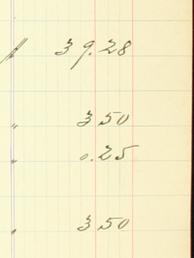 39.28
" 3 50
" 0.25
" 3 50